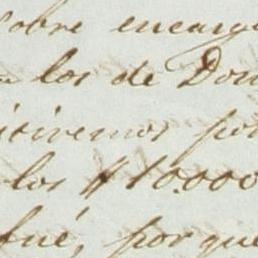 sobre encarg
los de Don
isiremos por
los $10.000
fué, porque